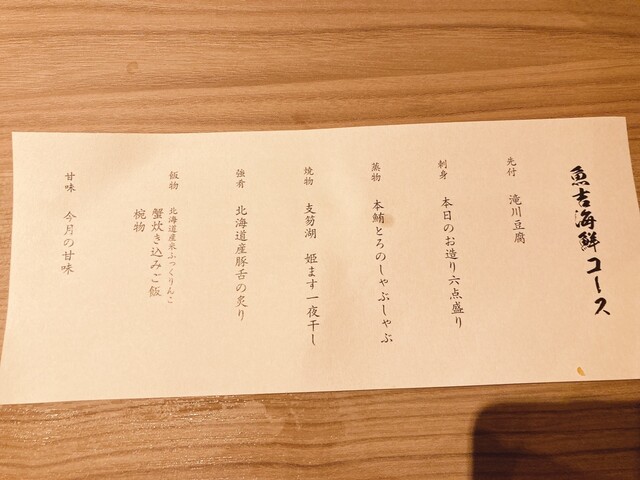 魚吉海鮮コース
先付 滝川豆腐
刺身 本日のお造り六点盛り
蒸物 本鮪とろのしゃぶしゃぶ
焼物 支笏湖 姫ます一夜干し
強肴 北海道産豚舌の炙り
飯物 北海道産米ふっくりんこ
蟹炊き込みご飯
椀物
甘味 今月の甘味